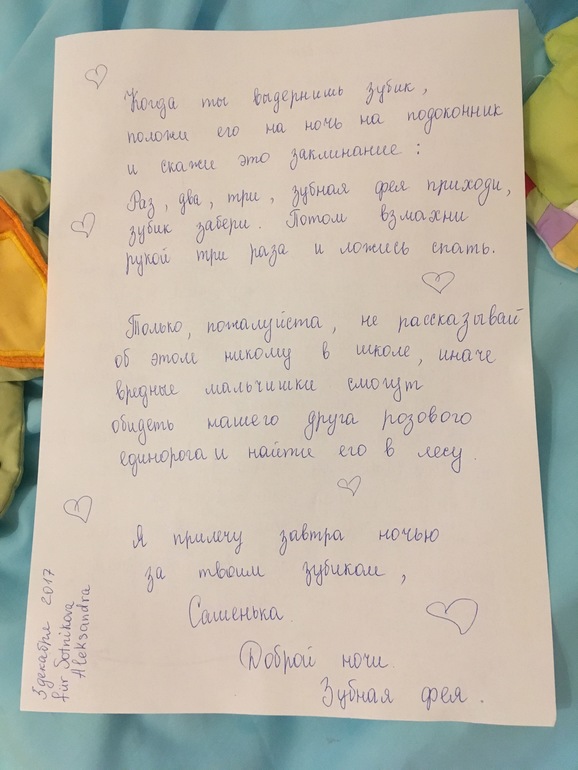 Когда ты выдернишь зубик,
положи его на ночь на подоконник
и скажи это заклинание:
Раз, два, три, зубная фея приходи,
зубик забери. Потом взмахни
рукой три раза и ложись спать.
Только, пожалуйста, не рассказывай
об этом никому в школе, иначе
вредные мальчишки смогут
обидеть нашего друга розового
единорога и найти его в лесу.
Я прилечу завтра ночью
за твоим зубиком,
Сашенька.
Доброй ночи.
Зубная фея.
3 декабря 2017
für Sotnikova
Aleksandra